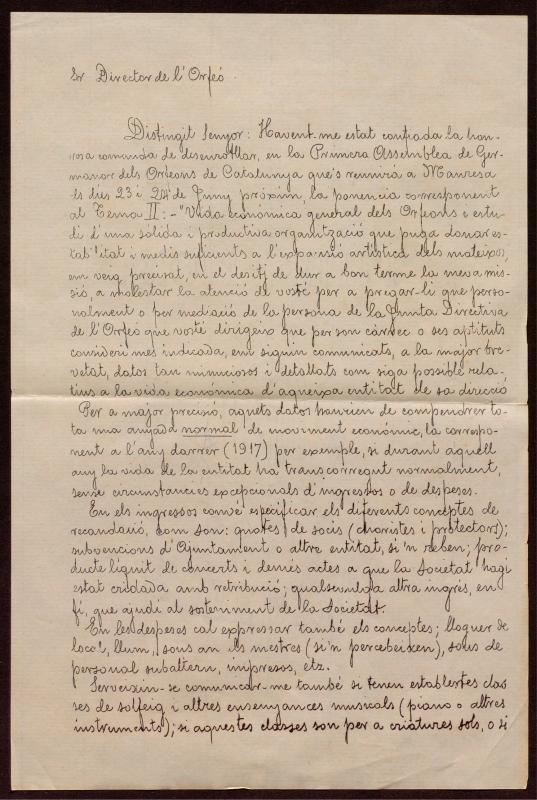 Sr Director de l'Orfeó
Distingit Senyor: Havent-me estat confiada la hon-
rosa comanda de desenrotllar, en la Primera Assemblea de Ger-
manor dels Orfeons de Catalunya que's reunirà a Manresa
els dies 23 i 24 de Juny próxim, la ponencia corresponent
al Tema II: - "Vida económica general dels Orfeons e estu-
di d'una sólida i productiva organització que puga donar es-
tabilitat i medis suficients a l'expansió artística dels mateixos,
em veig precisat, en el desitj de dur a bon terme la meva mis-
sió, a molestar la atenció de vosté per a pregar-li que perso-
nalment o per mediació de la persona de la Junta Directiva
de l'Orfeó que vosté dirigeix que per son càrrec o ses aptituts
consideri mes indicada, em siguin comunicats, a la major bre-
vetat, datos tan minuciosos i detallats com siga possible rela-
tius a la vida económica d'aqueixa entitat de sa direcció
Per a major precisió, aquets datos haurien de compendrer to-
ta una anyada normal de moviment económic, la correspo-
nent a l'any darrer (1917) per exemple, si durant aquell
any la vida de la entitat ha transcorregut normalment,
sense circumstancies excepcionals d'ingressos o de despeses.
En els ingressos convé especificar els diferents conceptes de
recaudació, com son: quotes de socis (choristes i protectors);
subvencions d'Ajuntament o altre entitat, si 'n reben; pro-
ducte líquit de concerts i demés actes a que la Societat hagi
estat cridada amb retribució; qualsevulga altra ingrés, en
fí, que ajudi al sosteniment de la Societat.
En les despeses cal expressar també els conceptes; lloguer de
local, llum, sous an els mestres (si'n percebeixen), sous de
personal subaltern, impresos, etz.
Serveixin-se comunicar-me també si tenen establertes clas
ses de solfeig i altres ensenyances musicals (piano o altres
instruments); si aquestes classes son per a criatures sols, o si